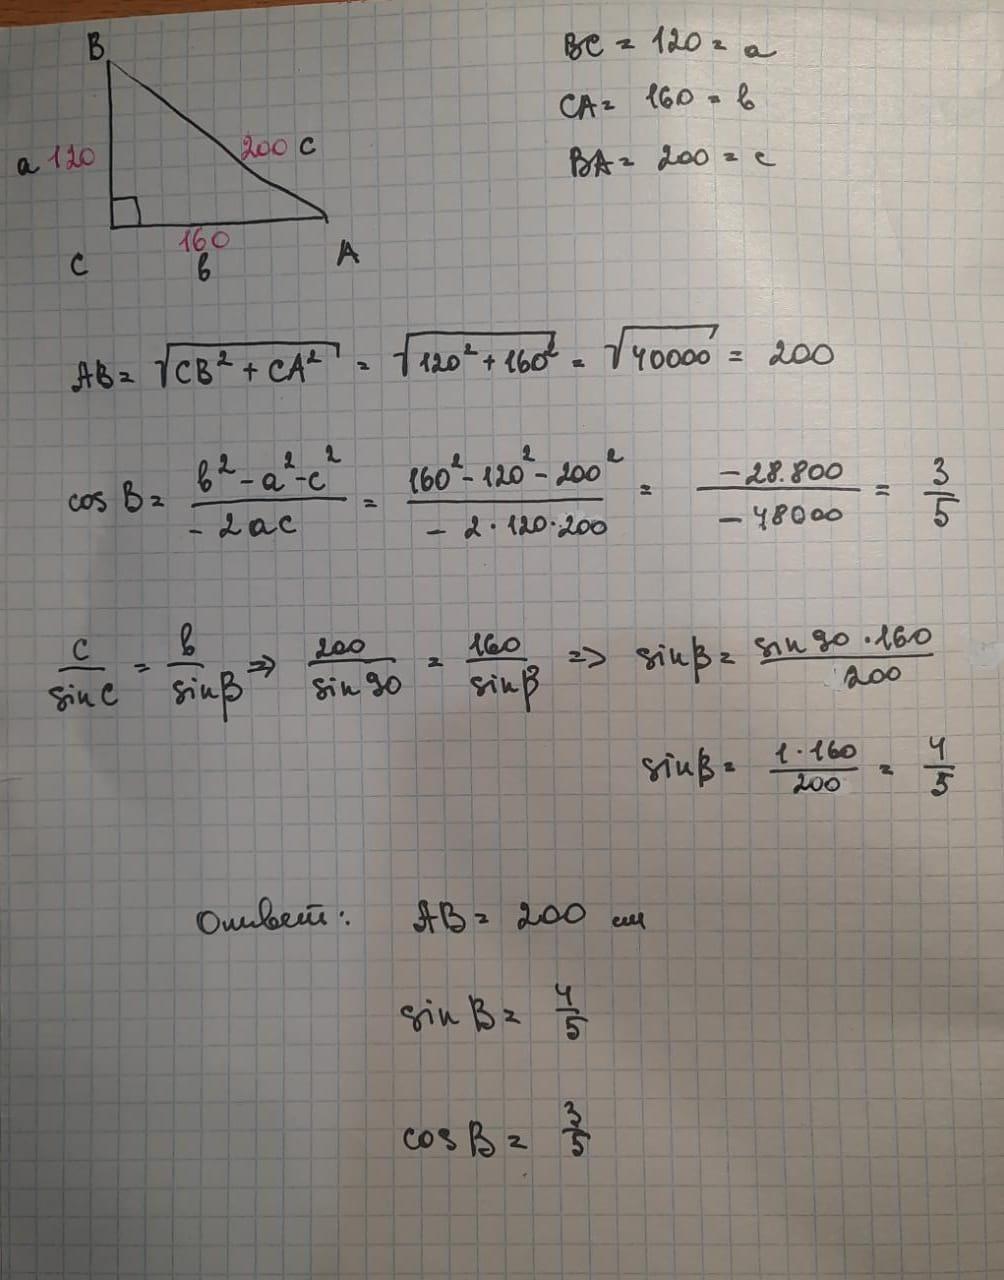 B
BC = 120 = a
CA = 160 = b
BA = 200 = c
a 120
200 c
160
C b A
AB = √(CB² + CA²) = √(120² + 160²) = √40000 = 200
cos B = (b² - a² - c²) / (- 2ac) = (160² - 120² - 200²) / (- 2 · 120 · 200) = (-28.800) / (-48000) = 3/5
c / sin C = b / sin β => 200 / sin 90 = 160 / sin β => sin β = (sin 90 · 160) / 200
sin β = (1 · 160) / 200 = 4/5
Ответ: AB = 200 см
sin B = 4/5
cos B = 3/5